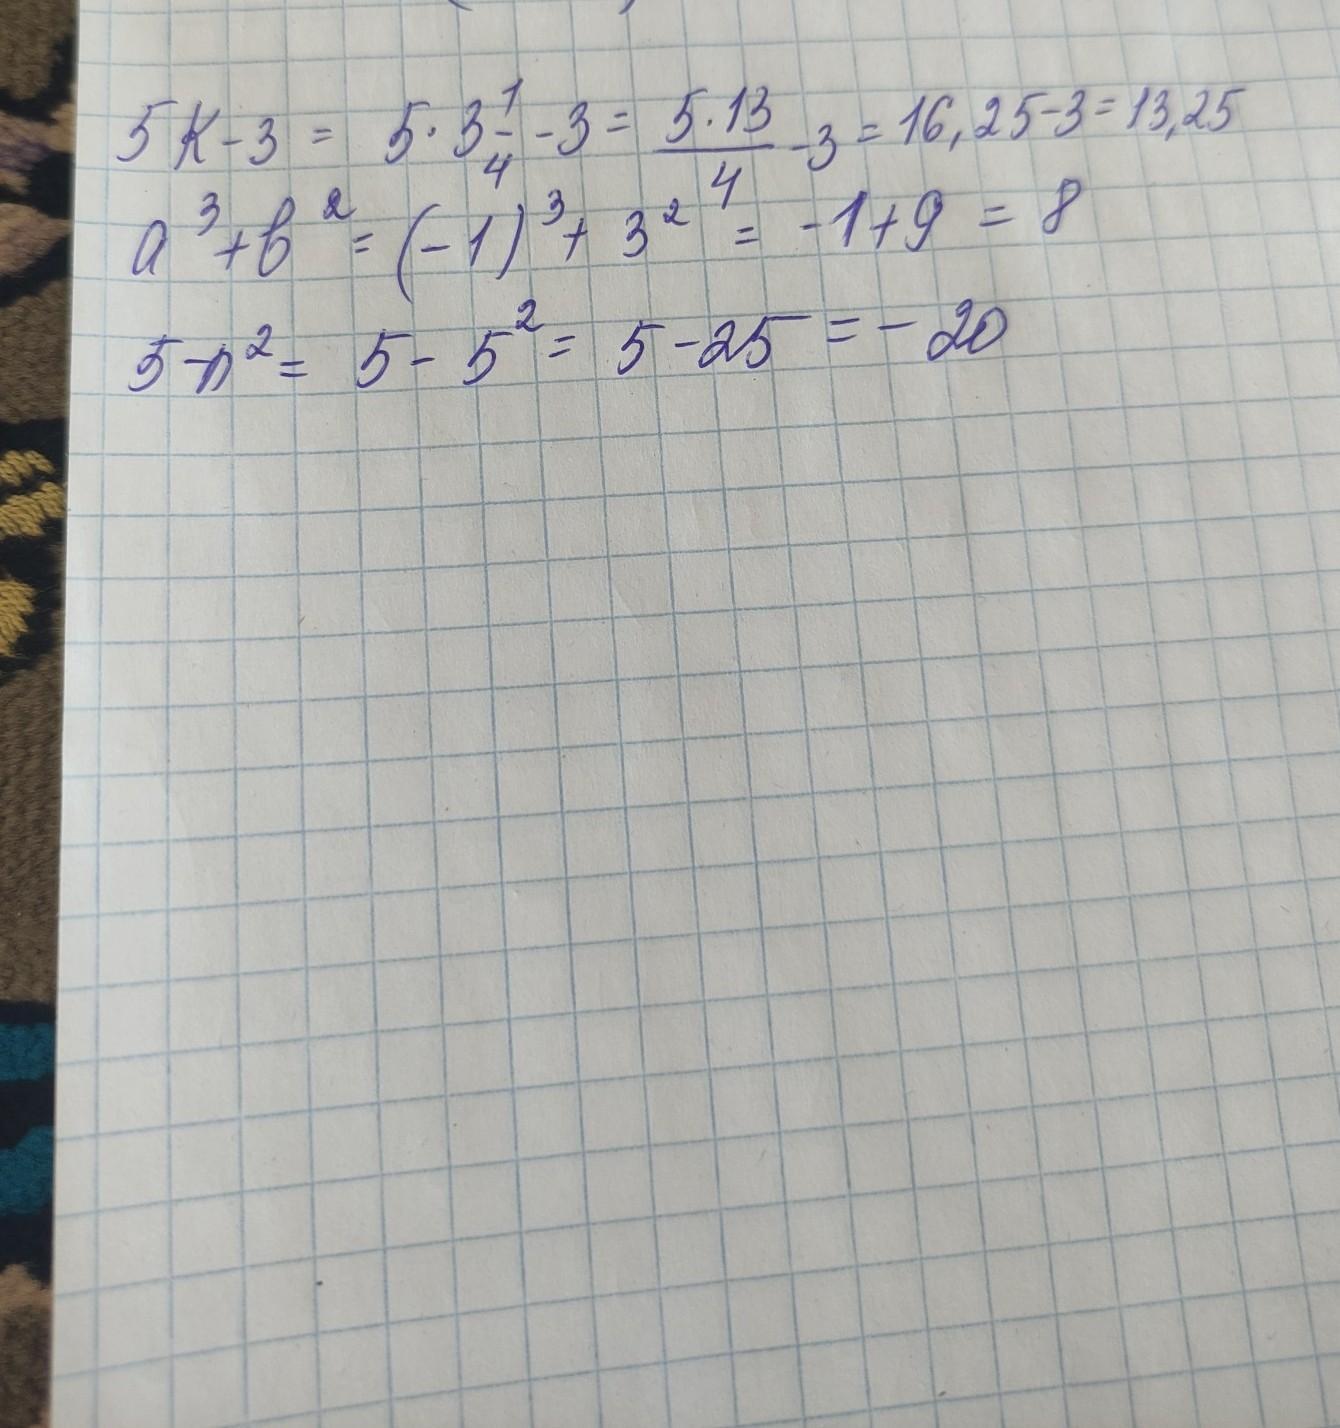 5k-3 = 5·3 1/4 -3 = 5·13/4 -3 = 16,25-3 = 13,25
a³+b² = (-1)³+ 3² = -1+9 = 8
5-n² = 5- 5² = 5-25 = - 20